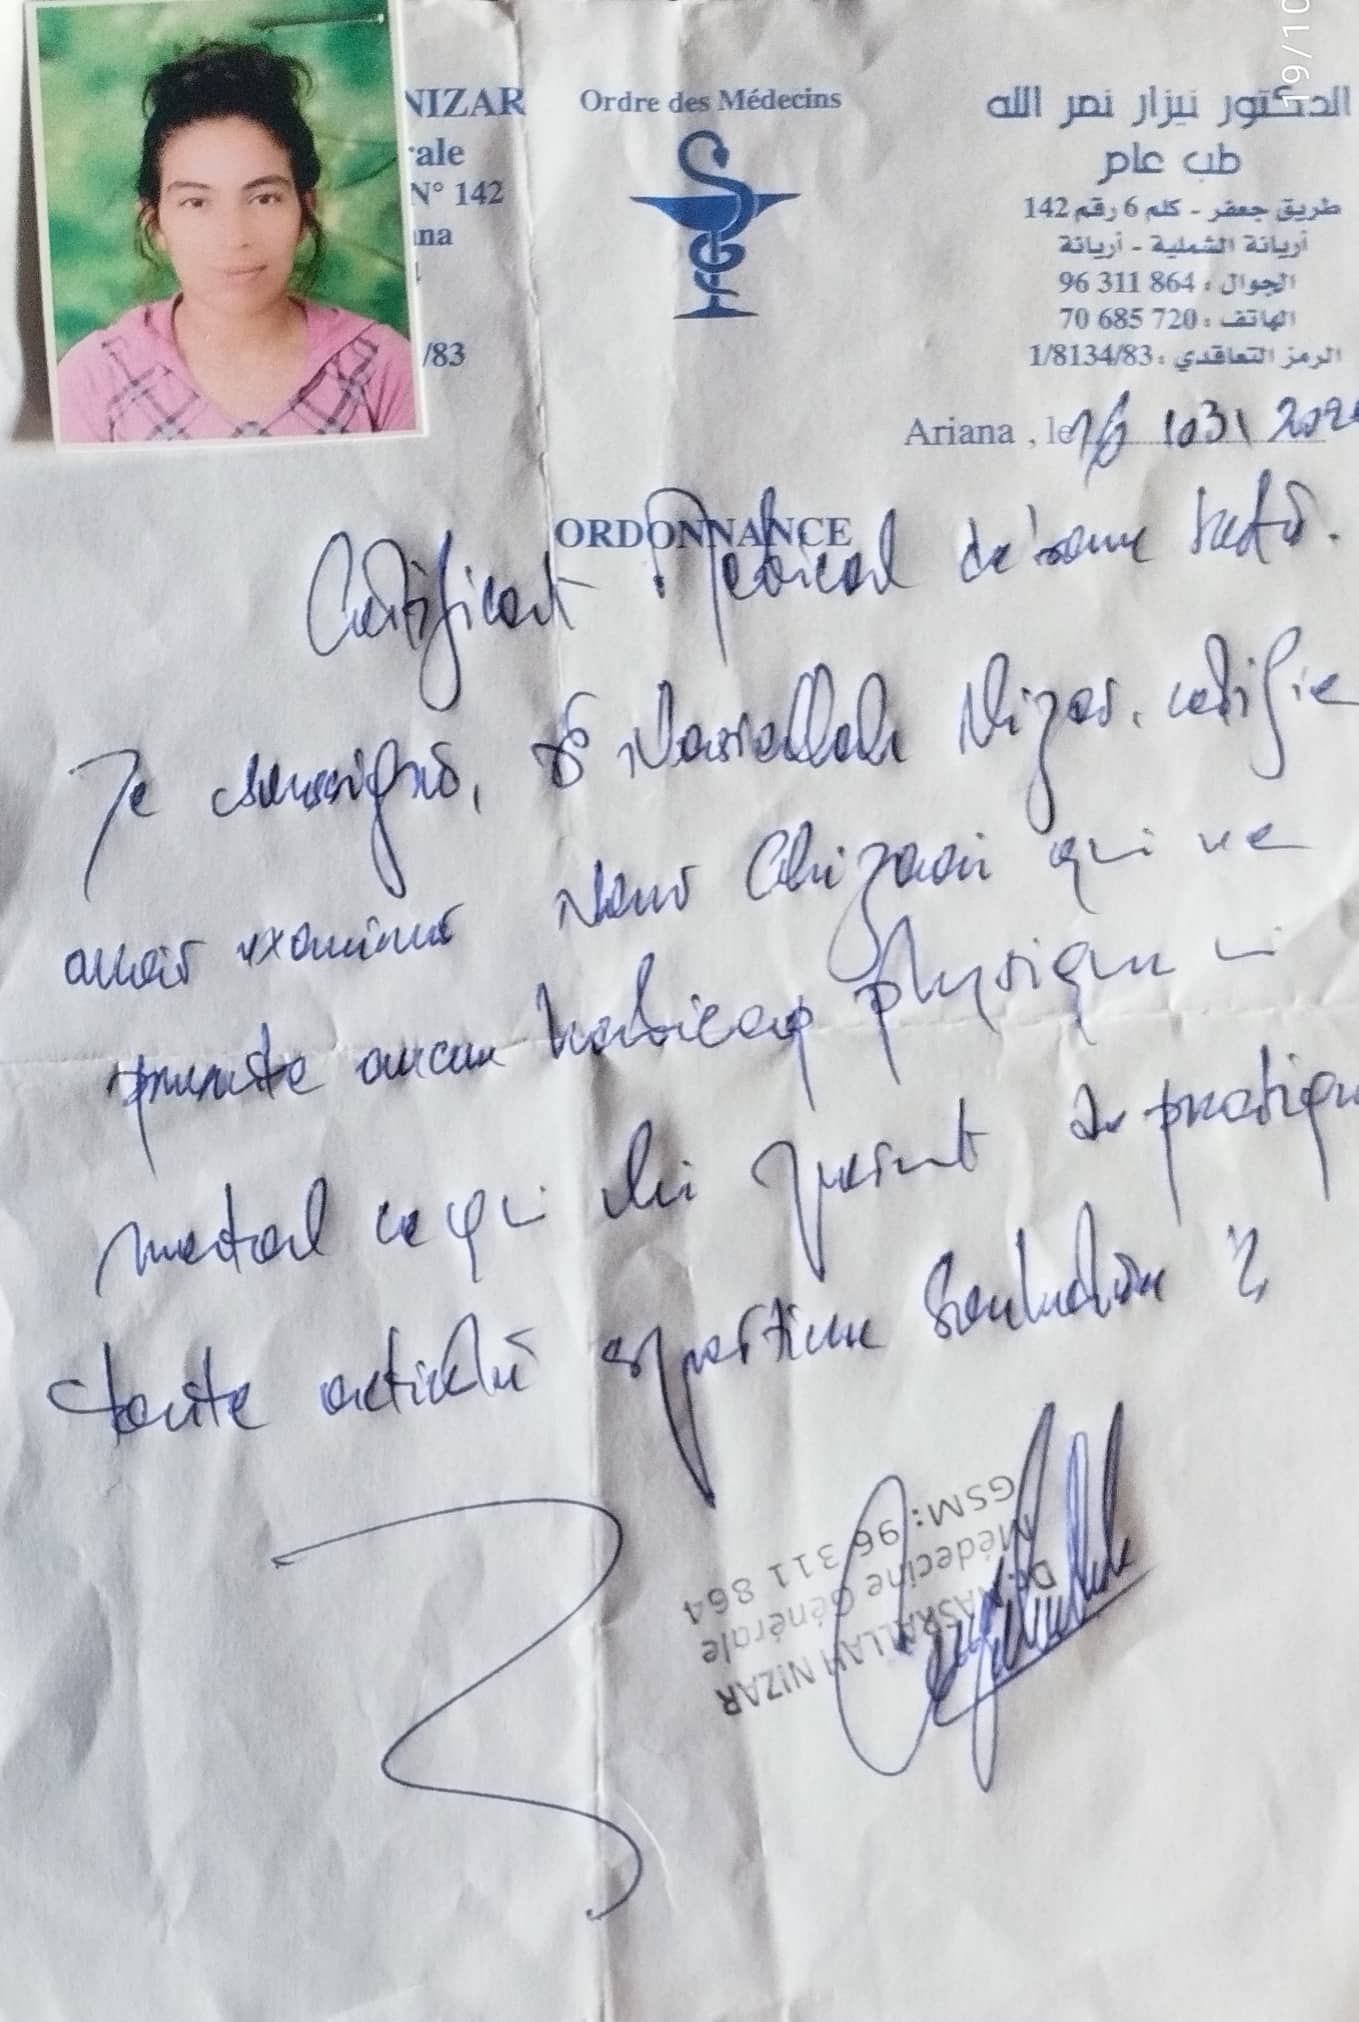 NIZAR
rale
N° 142
na
/83
Ordre des Médecins
الدكتور نيزار نصر الله
طب عام
طريق جعفر - كلم 6 رقم 142
أريانة الشملية - أريانة
الجوال : 96 311 864
الهاتف : 70 685 720
الرمز التعاقدي : 1/8134/83
19/10
Ariana , le 16 103\ 202
ORDONNANCE
Certificat Medical de bonne santé.
Je soussigné, Dr Nasrallah Nizar, certifie
avoir examiner Nour Ghizaoui qui ne
presente aucun handicap physique ni
mental ce qui lui permet de pratiquer
toute activité sportive
Dr. NASRALLAH NIZAR
Médecine Générale
GSM: 96 311 864